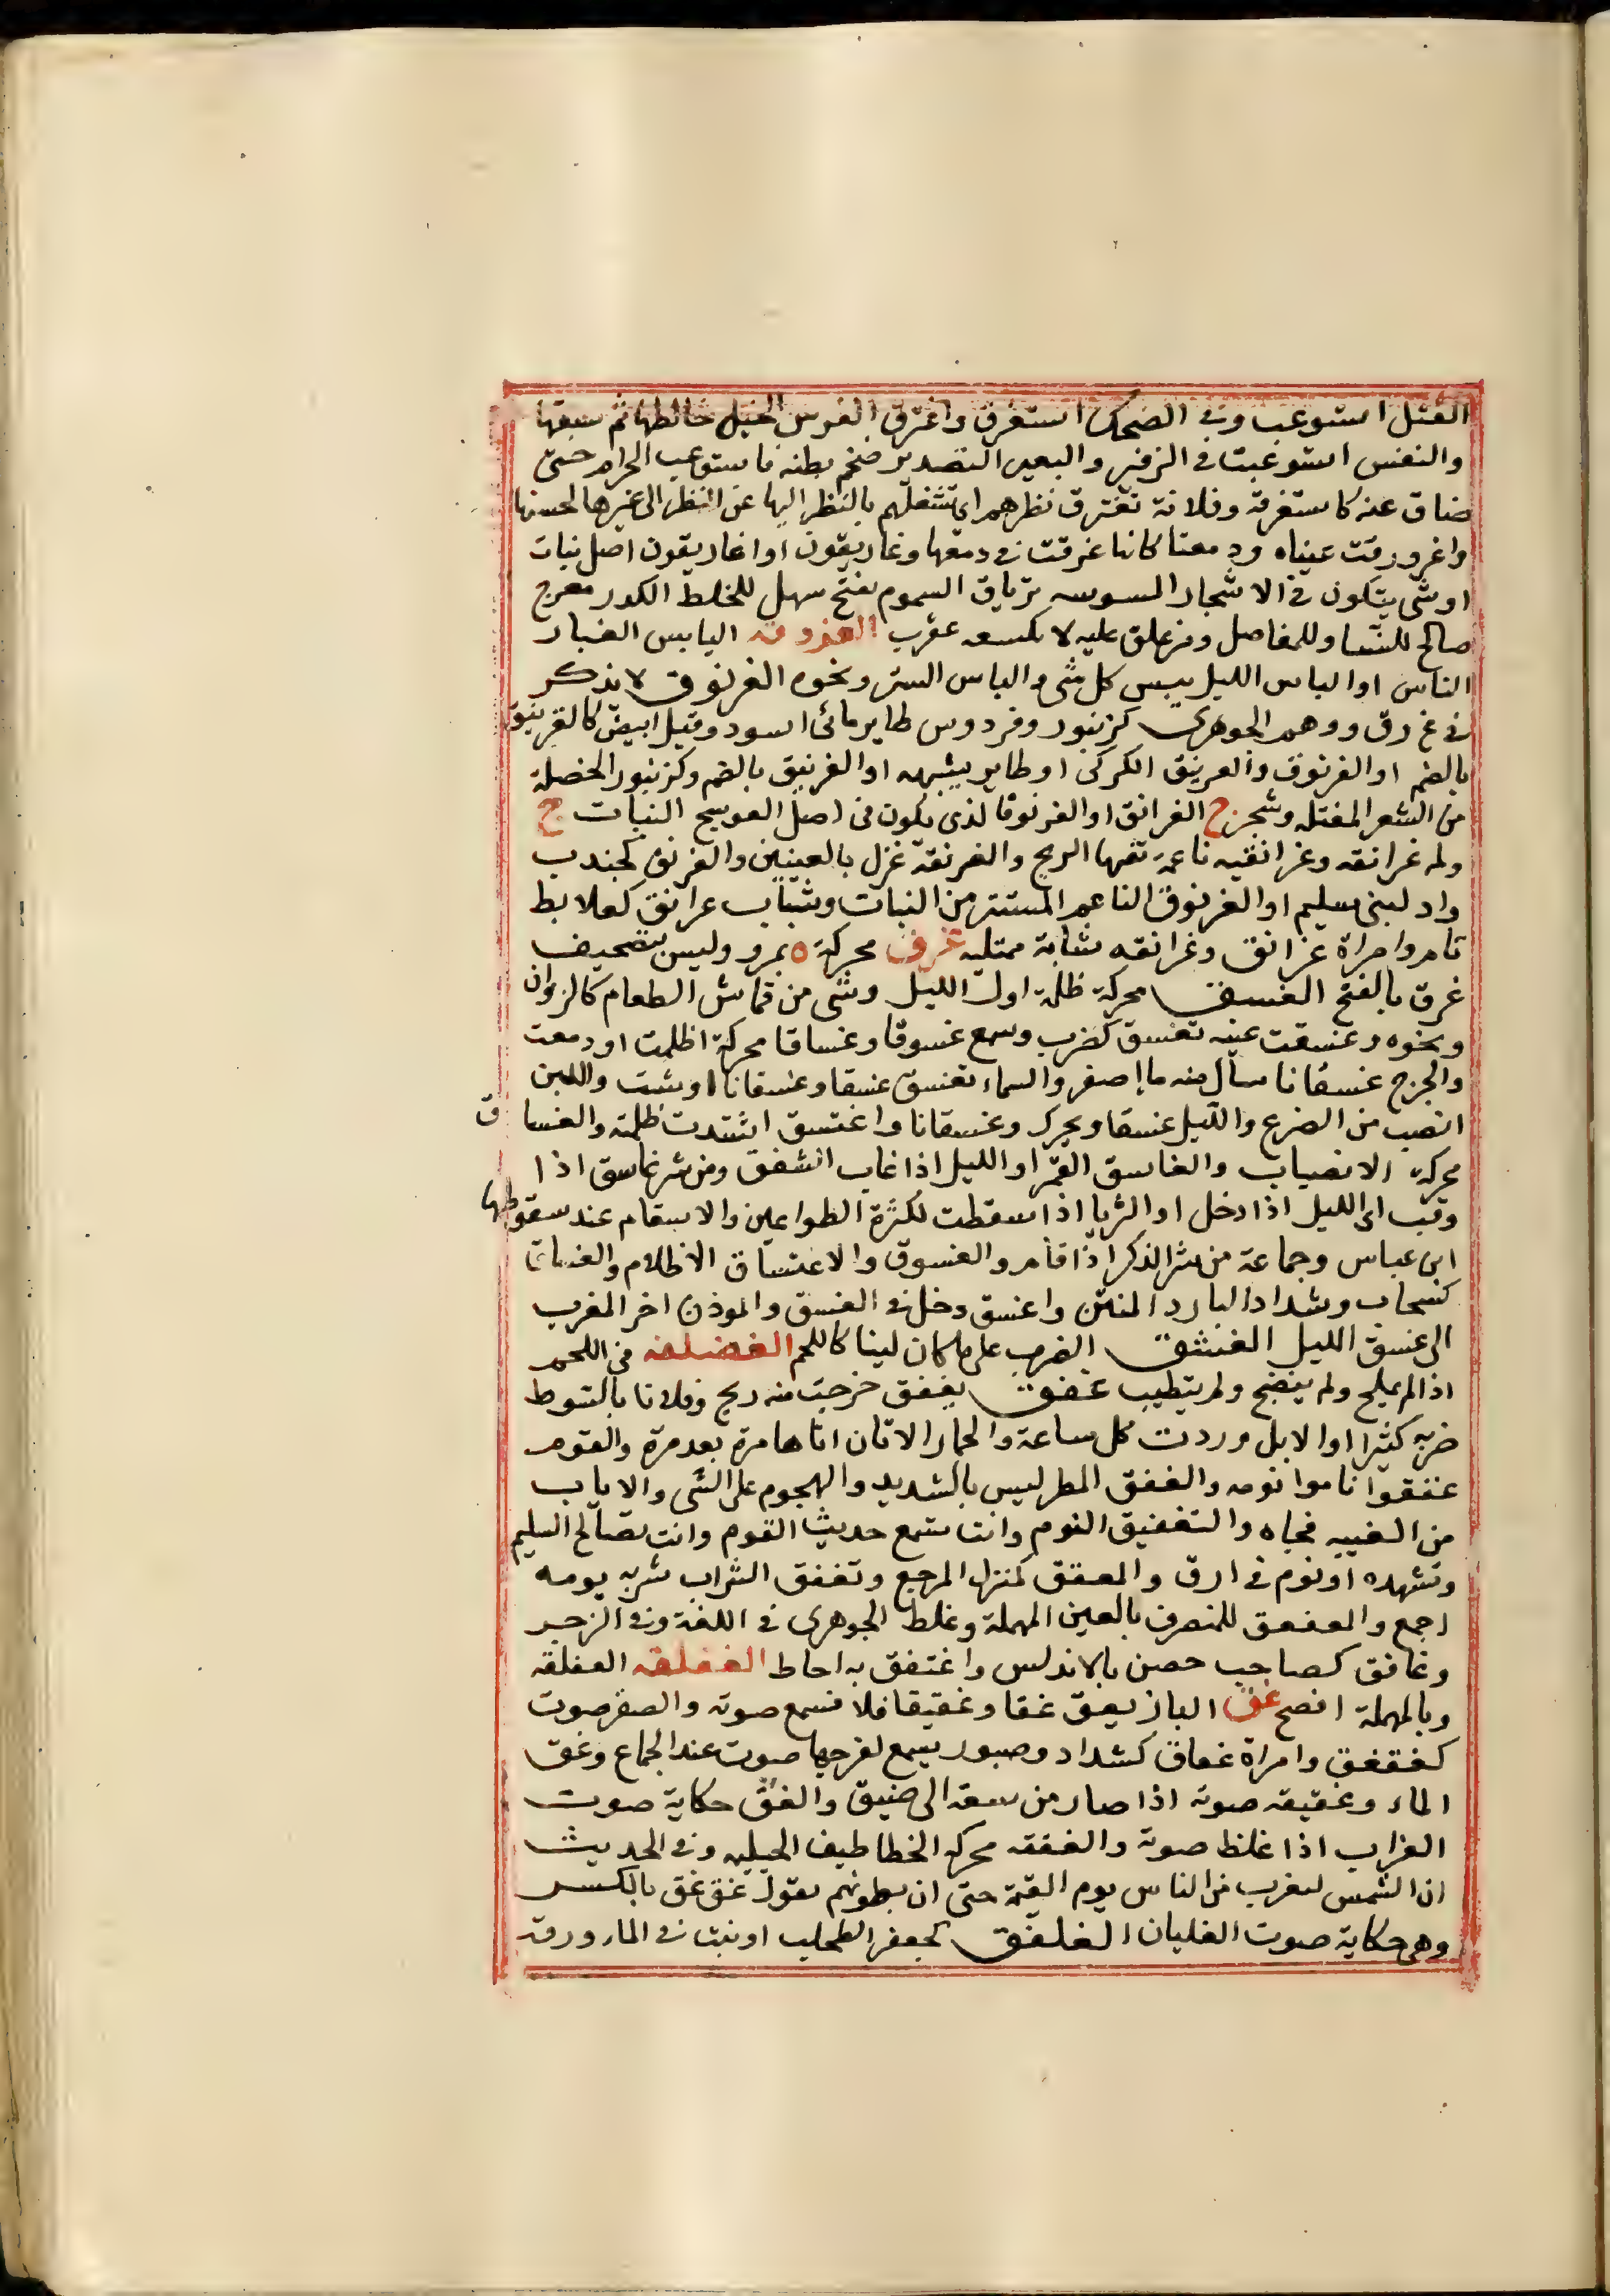 القتل استوعب وفى الضحك استغرق واغترق الفرس الخيل خالطها ثم سبقها
والنفس استوعبت فى الزفير والبعير التصدير ضخم بطنه فاستوعب الحزام حتى
ضاق عنه كاستغرقه وفلانة تغترق نظرهم اى تشغلهم بالنظر اليها عن النظر الى غيرها لحسنها
واغرورقت عيناه ودمعتا كانها غرقت فى دمعها وغاريقون او اغاريقون اصل نبات
او شى يتكون فى الاشجار المسوسه ترياق السموم مفتح مسهل للخلط الكدر مفرح
صالح للنسا وللمفاصل ومن علق عليه لا يلسعه عقرب الغزوقه الباس الغبار
الناس او الباس الليل يبس كل شى والباس الستر ونحوه الغرنوق لا يذكر
فى غ رق ووهم الجوهرى كزنبور وفردوس طاير مائى اسود وقيل ابيض كالغرنيق
بالضم او الغرنوق والغرنيق الكركى او طاير يشبهه او الغرنيق بالضم وكزنبور الخصلة
من الشعر المفتله وشجر ج الغرانق او الغرنوق الذى يكون فى اصل العوسج النبات ج
ولمه غرانقه وغرانقيه ناعمة تفيها الريح والغرنقة غزل بالعينين والغرنق كجندب
واد لبنى سليم او الغرنوق الناعم المستتر من النبات وشباب غرانق كعلابط
تام وامراة غرانق وغرانقه شابة ممتليه غزق محركة ه بمرو وليس بتصحيف
غرق بالفتح الغسق محركة ظلمة اول الليل وشى من قماش الطعام كالزوان
ونحوه وغسقت عينه تغسق كضرب وسمع غسوقا وغسقانا محركة اظلمت او دمعت
والجرح غسقانا سال منه ما اصفر والسماء تغسق غسقا وغسقانا ارشت واللبن
انصب من الضرع والليل غسقا ويحرك وغسقانا واغتسق اشتدت ظلمته والغساق
محركة الانصباب والغاسق القمر او الليل اذا غاب الشفق ومن شر غاسق اذا
وقب اى الليل اذا دخل او الثريا اذا سقطت لكثرة الطواعين والاسقام عند سقوطها
ابن عباس وجماعة من شر الذكر اذا قام والغسوق والاغتساق الاظلام والغساق
كسحاب وشداد البارد المنتن واغسق دخل فى الغسق والموذن اخر المغرب
الى غسق الليل الغشق الضرب على ما كان لينا كاللحم الغضلقه من اللحم
اذا لم يملح ولم ينضج ولم يتطيب غفق يغفق خرجت منه ريح وفلانا بالسوط
ضربه كثيرا او الابل وردت كل ساعة والحمار الاتان اتاها مرة بعد مرة والقوم
غفقوا ناموا نومه والغفق المطر ليس بالشديد والهجوم على الشى والاياب
من الغيبه فجاه والتغفيق النوم وانت تسمع حديث القوم وانت تعالج السليم
وتشهده او نوم فى ارق والمغفق كمنزل المرجع وتغفق الشراب شربه يومه
اجمع والمغفعق للمنصرف بالعين المهملة وغلط الجوهرى فى اللغة وفى الزجر
وغافق كصاحب حصن بالاندلس واغتفق به احاط الغفلقه العفلقه
وبالمهملة افصح غق الباز يغق غقا وغقيقا فلا تسمع صوته والصقر صوت
كغقغق وامراة غقاق كشداد وصبور يسمع لفرجها صوت عند الجماع وغق
الماء وغقيقه صوته اذا صار من سعة الى ضيق والغق حكاية صوت
الغراب اذا غلظ صوته والغققه محركه الخطاطيف الجبليه وفى الحديث
ان الشمس لتقرب من الناس يوم القيمة حتى ان بطونهم تقول غق غق بالكسر
وهى حكاية صوت الغليان الغلفق كجعفر الطحلب او نبت فى الماء ورقه